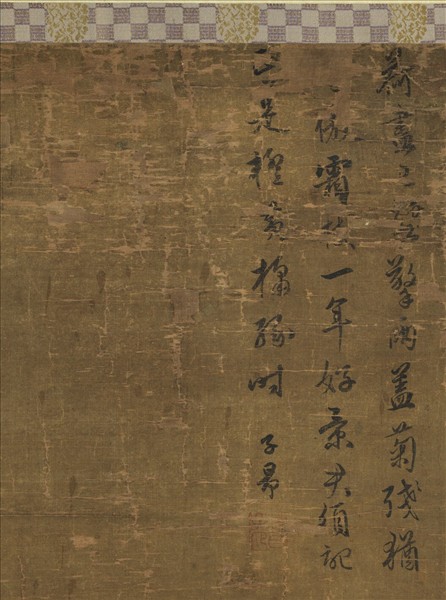 荷盡已無擎雨盖菊殘猶
傲霜枝一年好景君須記
正是橙黃橘綠時 子昂